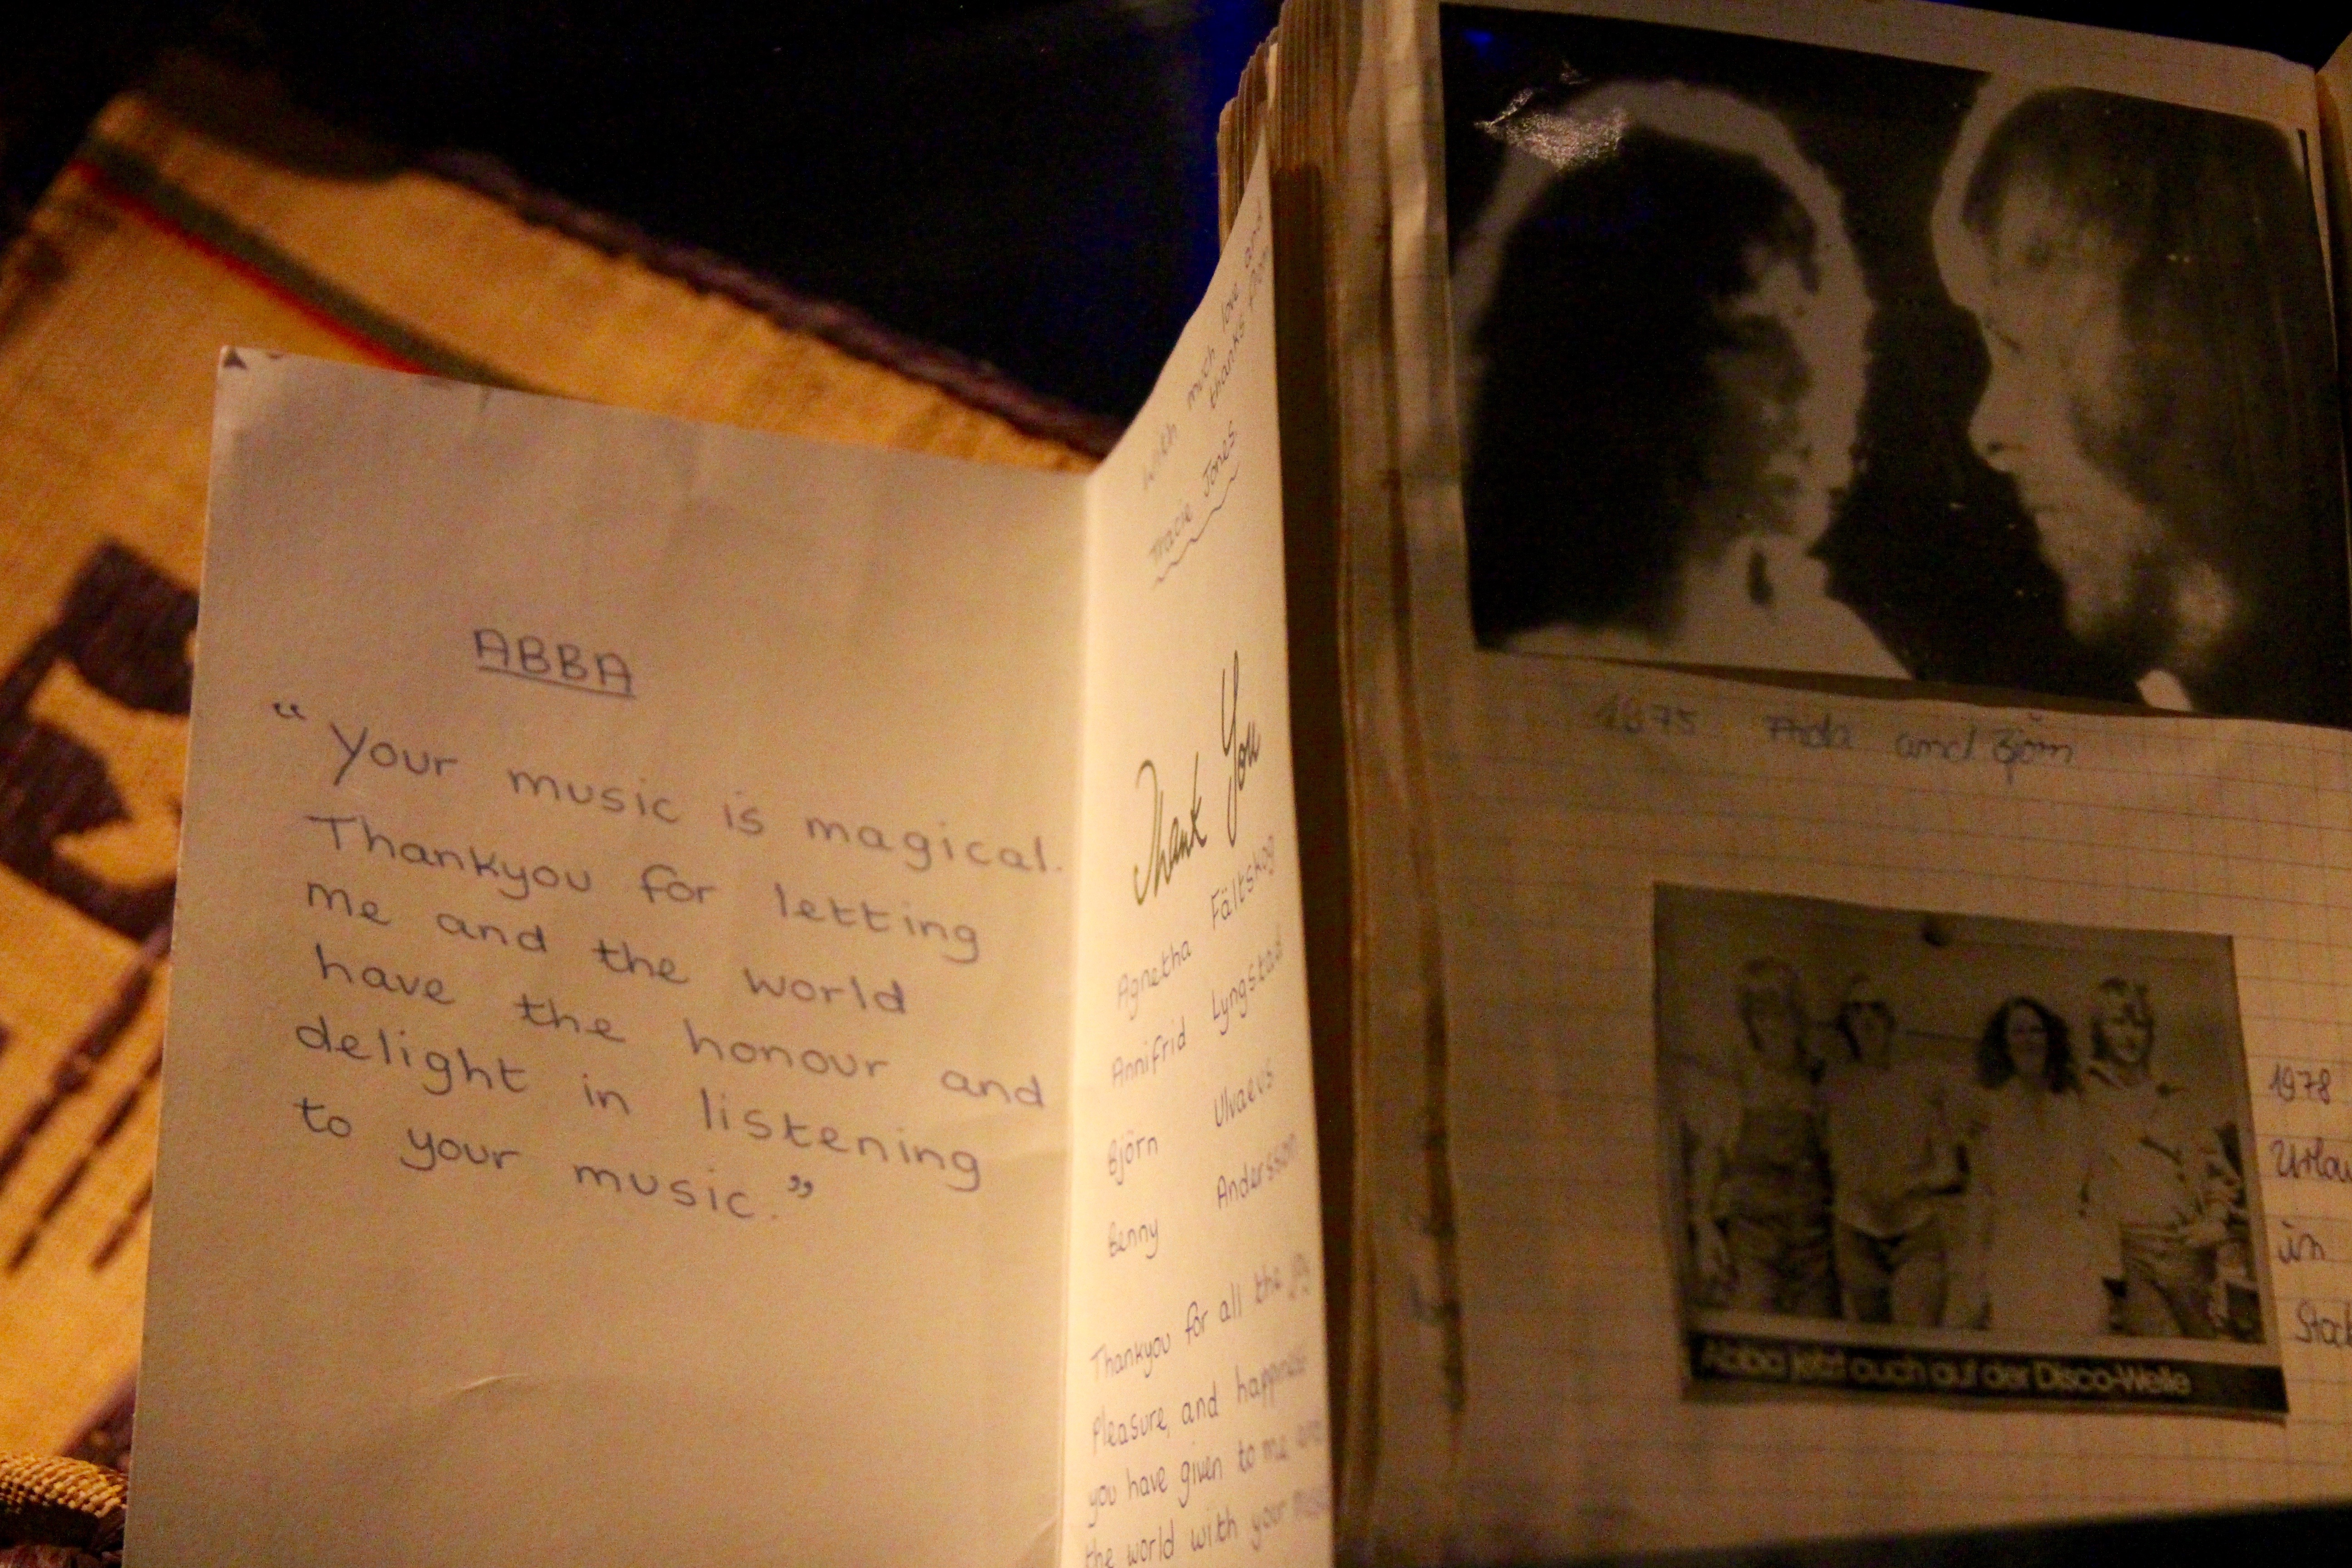 ABBA
“ Your music is magical.
Thankyou for letting
me and the world
have the honour and
delight in listening
to your music.”
With much love and
thanks from
Tracie Jones
Thank You
Agnetha Fältskog
Annifrid Lyngstad
Björn Ulvaeus
Benny Andersson
Thankyou for all the joy
pleasure, and happiness
you have given to me and
the world with your music
1975 Frida and Björn
1978
in
Abba jetzt auch auf der Disco-Welle